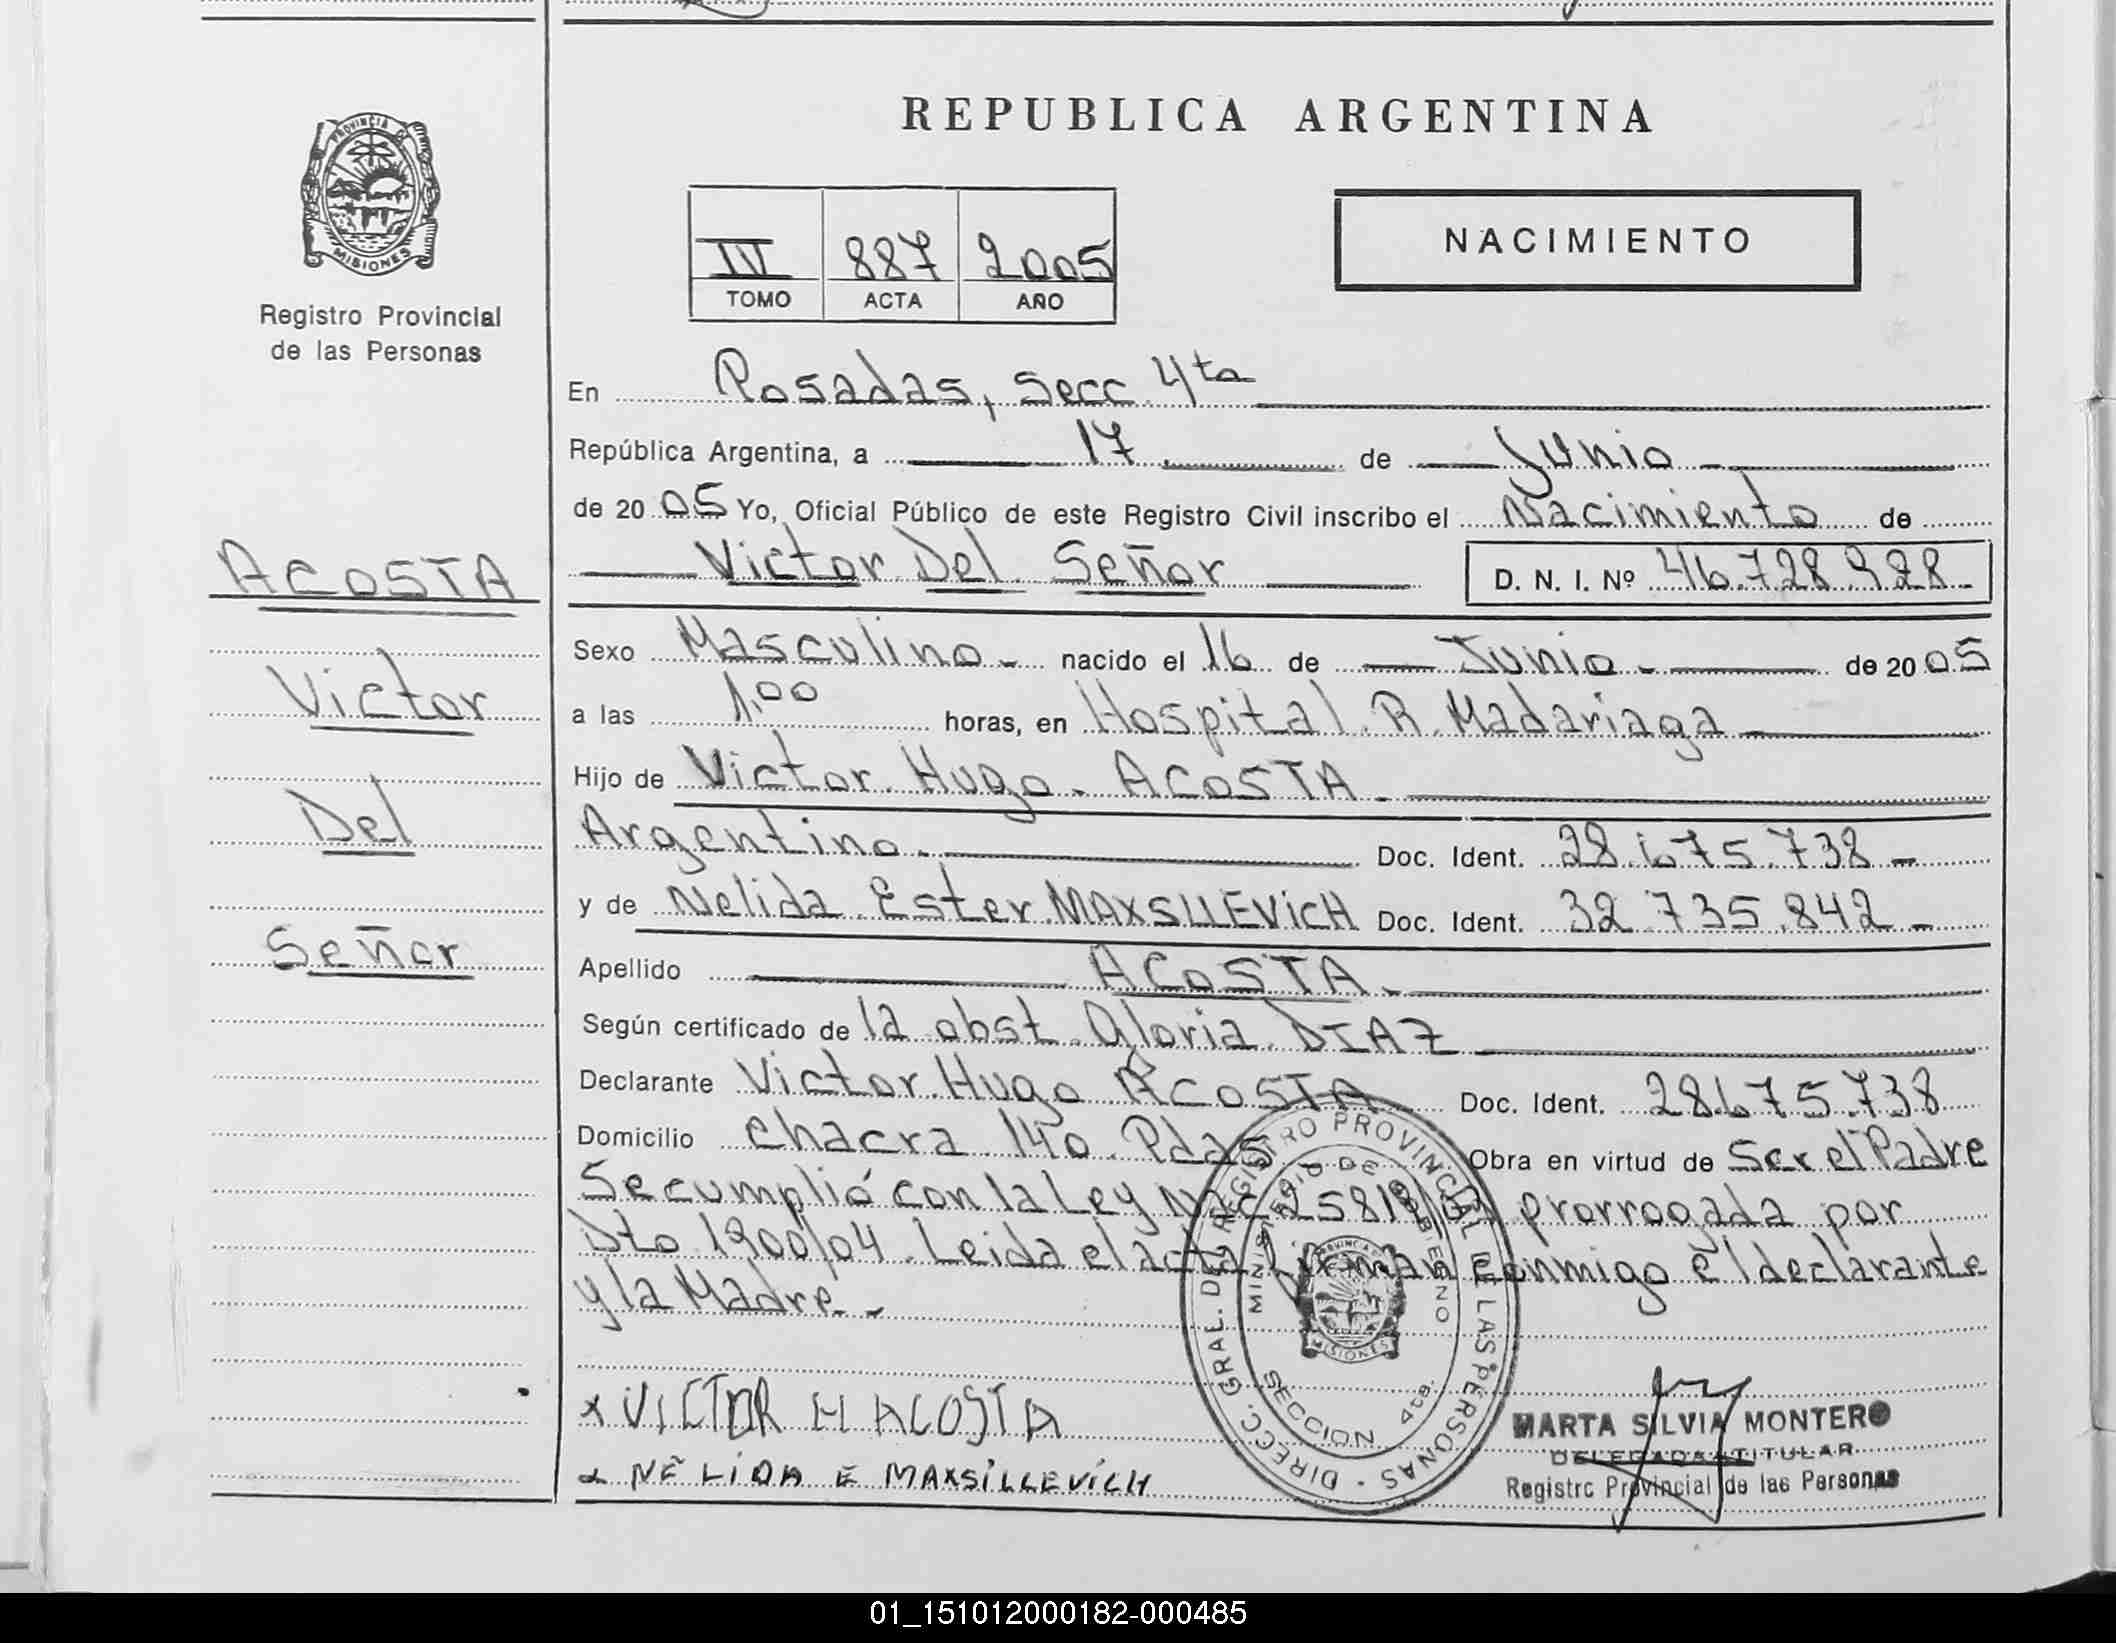 REPUBLICA ARGENTINA
PROVINCIA DE
MISIONES
Registro Provincial
de las Personas
IV 887 2005
TOMO ACTA AÑO
NACIMIENTO
En Posadas, Secc 4ta
República Argentina, a 17 de Junio
de 2005 Yo, Oficial Público de este Registro Civil inscribo el Nacimiento de
Victor Del Señor D. N. I. Nº 46.728.928
ACOSTA
Victor
Del
Señor
Sexo Masculino nacido el 16 de Junio de 2005
a las 1,00 horas, en Hospital R. Madariaga
Hijo de Victor Hugo ACOSTA
Argentino Doc. Ident. 28.675.738
y de Nelida Ester MAXSLLEVICH Doc. Ident. 32.735.842
Apellido ACOSTA
Según certificado de la obst. Gloria DIAZ
Declarante Victor Hugo ACOSTA Doc. Ident. 28.675.738
Domicilio Chacra 140 Pdas Obra en virtud de Ser el Padre
Se cumplió con la Ley 25819 prorrogada por
Dto 1900/04. Leida el acta firman conmigo el declarante
y la Madre.-
x VICTOR H ACOSTA
NÉLIDA E MAXSILLEVICH
DIRECC. GRAL. DEL REGISTRO PROVINCIAL DE LAS PERSONAS
MINISTERIO DE GOBIERNO
MISIONES
SECCION 4ta.
MARTA SILVIA MONTERO
DELEGADA TITULAR
Registro Provincial de las Personas
01_151012000182-000485